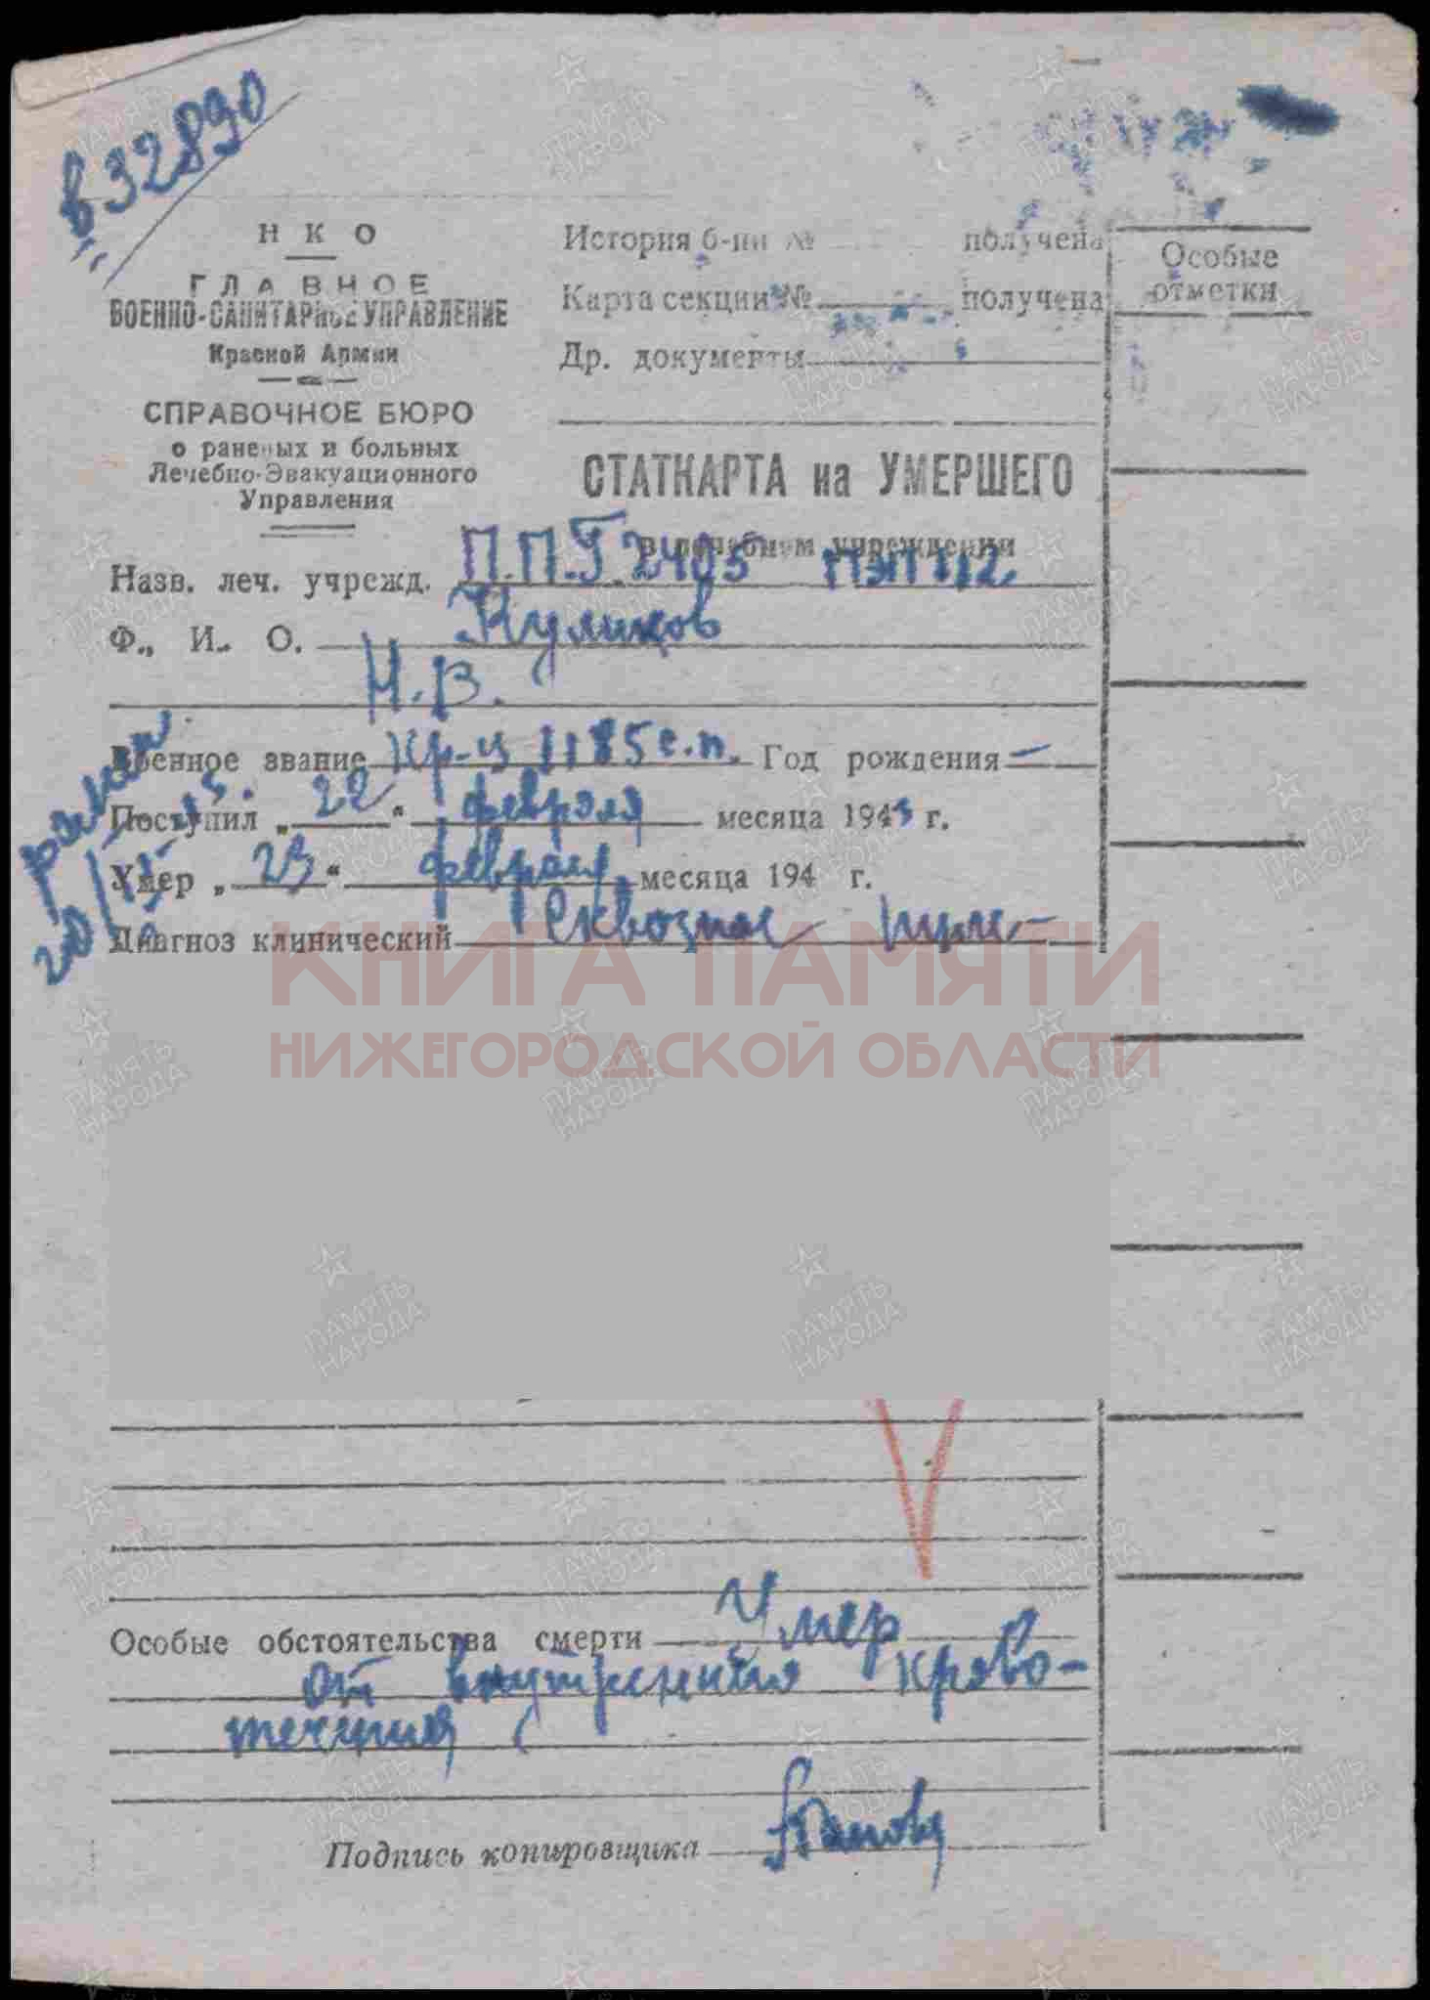 в 32890
Н К О
ГЛАВНОЕ
ВОЕННО-САНИТАРНОЕ УПРАВЛЕНИЕ
Красной Армии
СПРАВОЧНОЕ БЮРО
о раненых и больных
Лечебно-Эвакуационного
Управления
История б-ни № получена
Карта секции № получена
Др. документы
Особые
отметки
СТАТКАРТА на УМЕРШЕГО
в лечебном учреждении
Назв. леч. учрежд. П.П.Г. 2405 ПЭП 112
Ф., И., О. Куликов
Н.В.
Военное звание Кр-ц 1185 с.п. Год рождения —
ранен
Поступил „22" февраля месяца 1943 г.
Умер „23" февраля месяца 194 г.
Диагноз клинический Сквозное пуле-
КНИГА ПАМЯТИ
НИЖЕГОРОДСКОЙ ОБЛАСТИ
Особые обстоятельства смерти Умер
от внутренния крово-
течения
Подпись копировщика
ПАМЯТЬ
НАРОДА